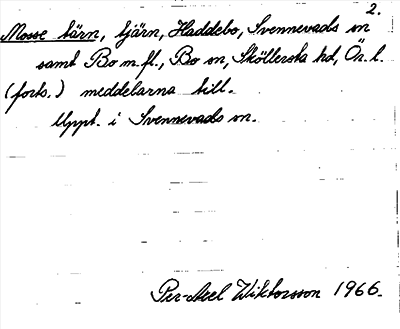 2.
Mosse tärn, tjärn, Haddebo, Svennevads sn
samt Bo m.fl., Bo sn, Sköllersta hd, Ör. l.
(forts.) meddelarna till.
Uppt. i Svennevads sn.
Per-Axel Wiktorsson 1966.